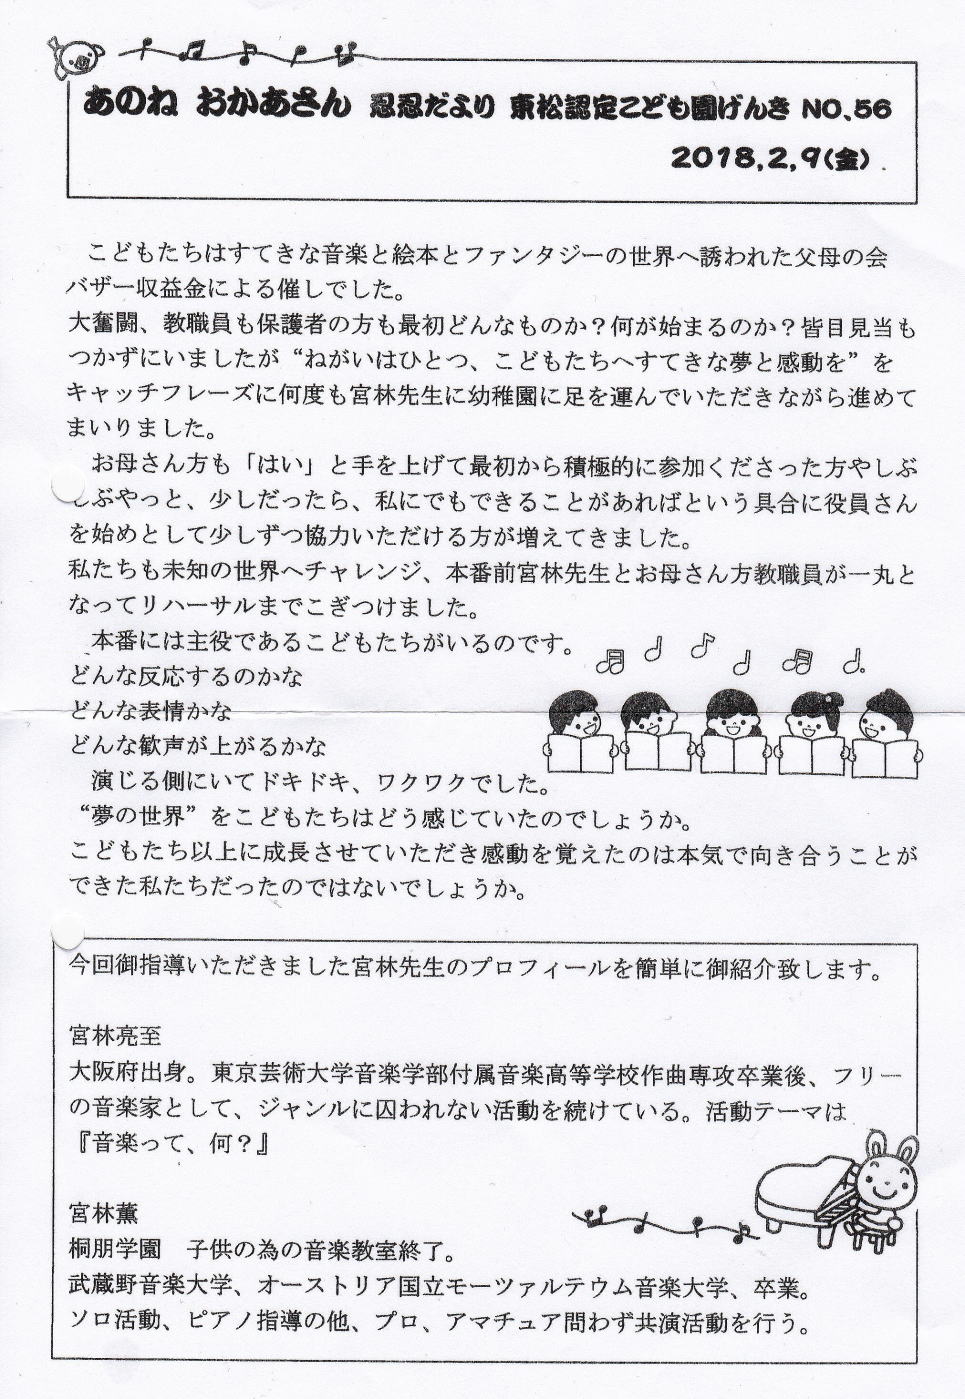 あのね おかあさん 忍忍だより 東松認定こども園げんき NO.56
2018.2.9(金)
こどもたちはすてきな音楽と絵本とファンタジーの世界へ誘われた父母の会
バザー収益金による催しでした。
大奮闘、教職員も保護者の方も最初どんなものか？何が始まるのか？皆目見当も
つかずにいましたが“ねがいはひとつ、こどもたちへすてきな夢と感動を”を
キャッチフレーズに何度も宮林先生に幼稚園に足を運んでいただきながら進めて
まいりました。
お母さん方も「はい」と手を上げて最初から積極的に参加くださった方やしぶ
しぶやっと、少しだったら、私にでもできることがあればという具合に役員さん
を始めとして少しずつ協力いただける方が増えてきました。
私たちも未知の世界へチャレンジ、本番前宮林先生とお母さん方教職員が一丸と
なってリハーサルまでこぎつけました。
本番には主役であるこどもたちがいるのです。
どんな反応するのかな
どんな表情かな
どんな歓声が上がるかな
演じる側にいてドキドキ、ワクワクでした。
“夢の世界”をこどもたちはどう感じていたのでしょうか。
こどもたち以上に成長させていただき感動を覚えたのは本気で向き合うことが
できた私たちだったのではないでしょうか。
今回御指導いただきました宮林先生のプロフィールを簡単に御紹介致します。
宮林亮至
大阪府出身。東京芸術大学音楽学部付属音楽高等学校作曲専攻卒業後、フリー
の音楽家として、ジャンルに囚われない活動を続けている。活動テーマは
『音楽って、何？』
宮林薫
桐朋学園　子供の為の音楽教室終了。
武蔵野音楽大学、オーストリア国立モーツァルテウム音楽大学、卒業。
ソロ活動、ピアノ指導の他、プロ、アマチュア問わず共演活動を行う。